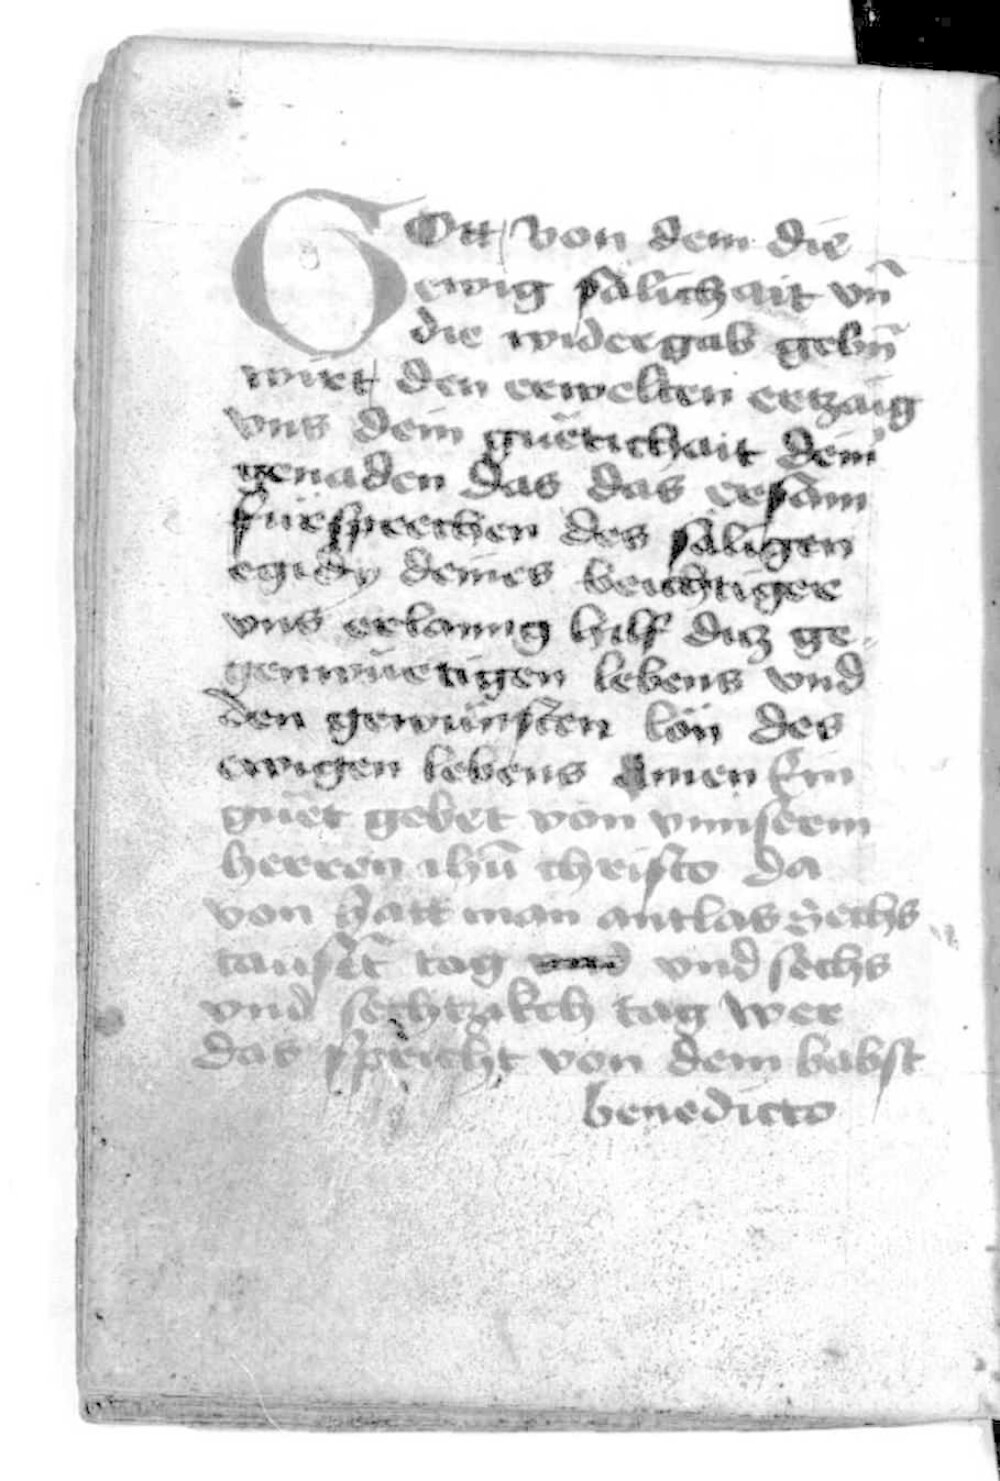 GOtt von dem die
ewig sälichait vn̄
die widergab gebn̄
wirt den erwelten ertzaig
vns dein güetichait dein
genaden das das ersam
fürsprechen des säligen
egidy deines beichtiger
vns erlanng hilf ditz ge-
genwürtigen lebens vnd
den gewünsten lön des
ewigen lebens Amen Ein
guet gebet von vnnserm
herren ihū christo da
von hatt man antlas sechs
tausēt tag vnd sechs
vnd sechtzikch tag Wer
das spricht von dem babst
benedicto